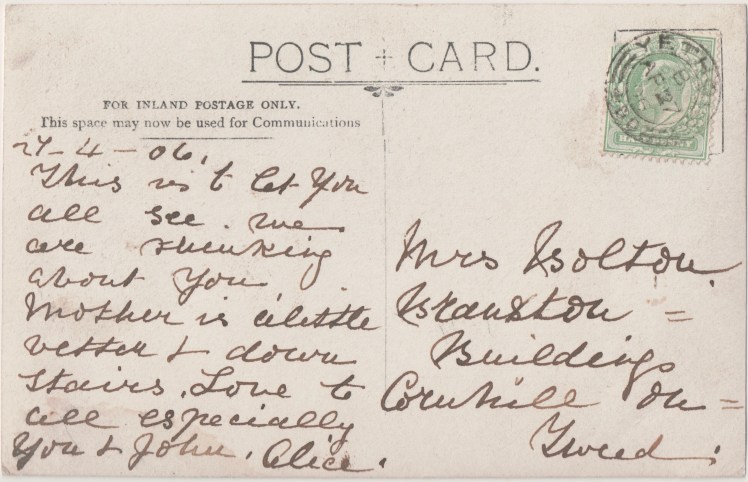 POST CARD.
FOR INLAND POSTAGE ONLY.
This space may now be used for Communications
27-4-06.
This is to let You
all see we
are thinking
about You
Mother is a little
better & down
stairs. Love to
all especially
You & John. Alice.
Mrs Bolton.
Branxton =
Buildings
Cornhill on =
Tweed.
YETH
HALFPENNY